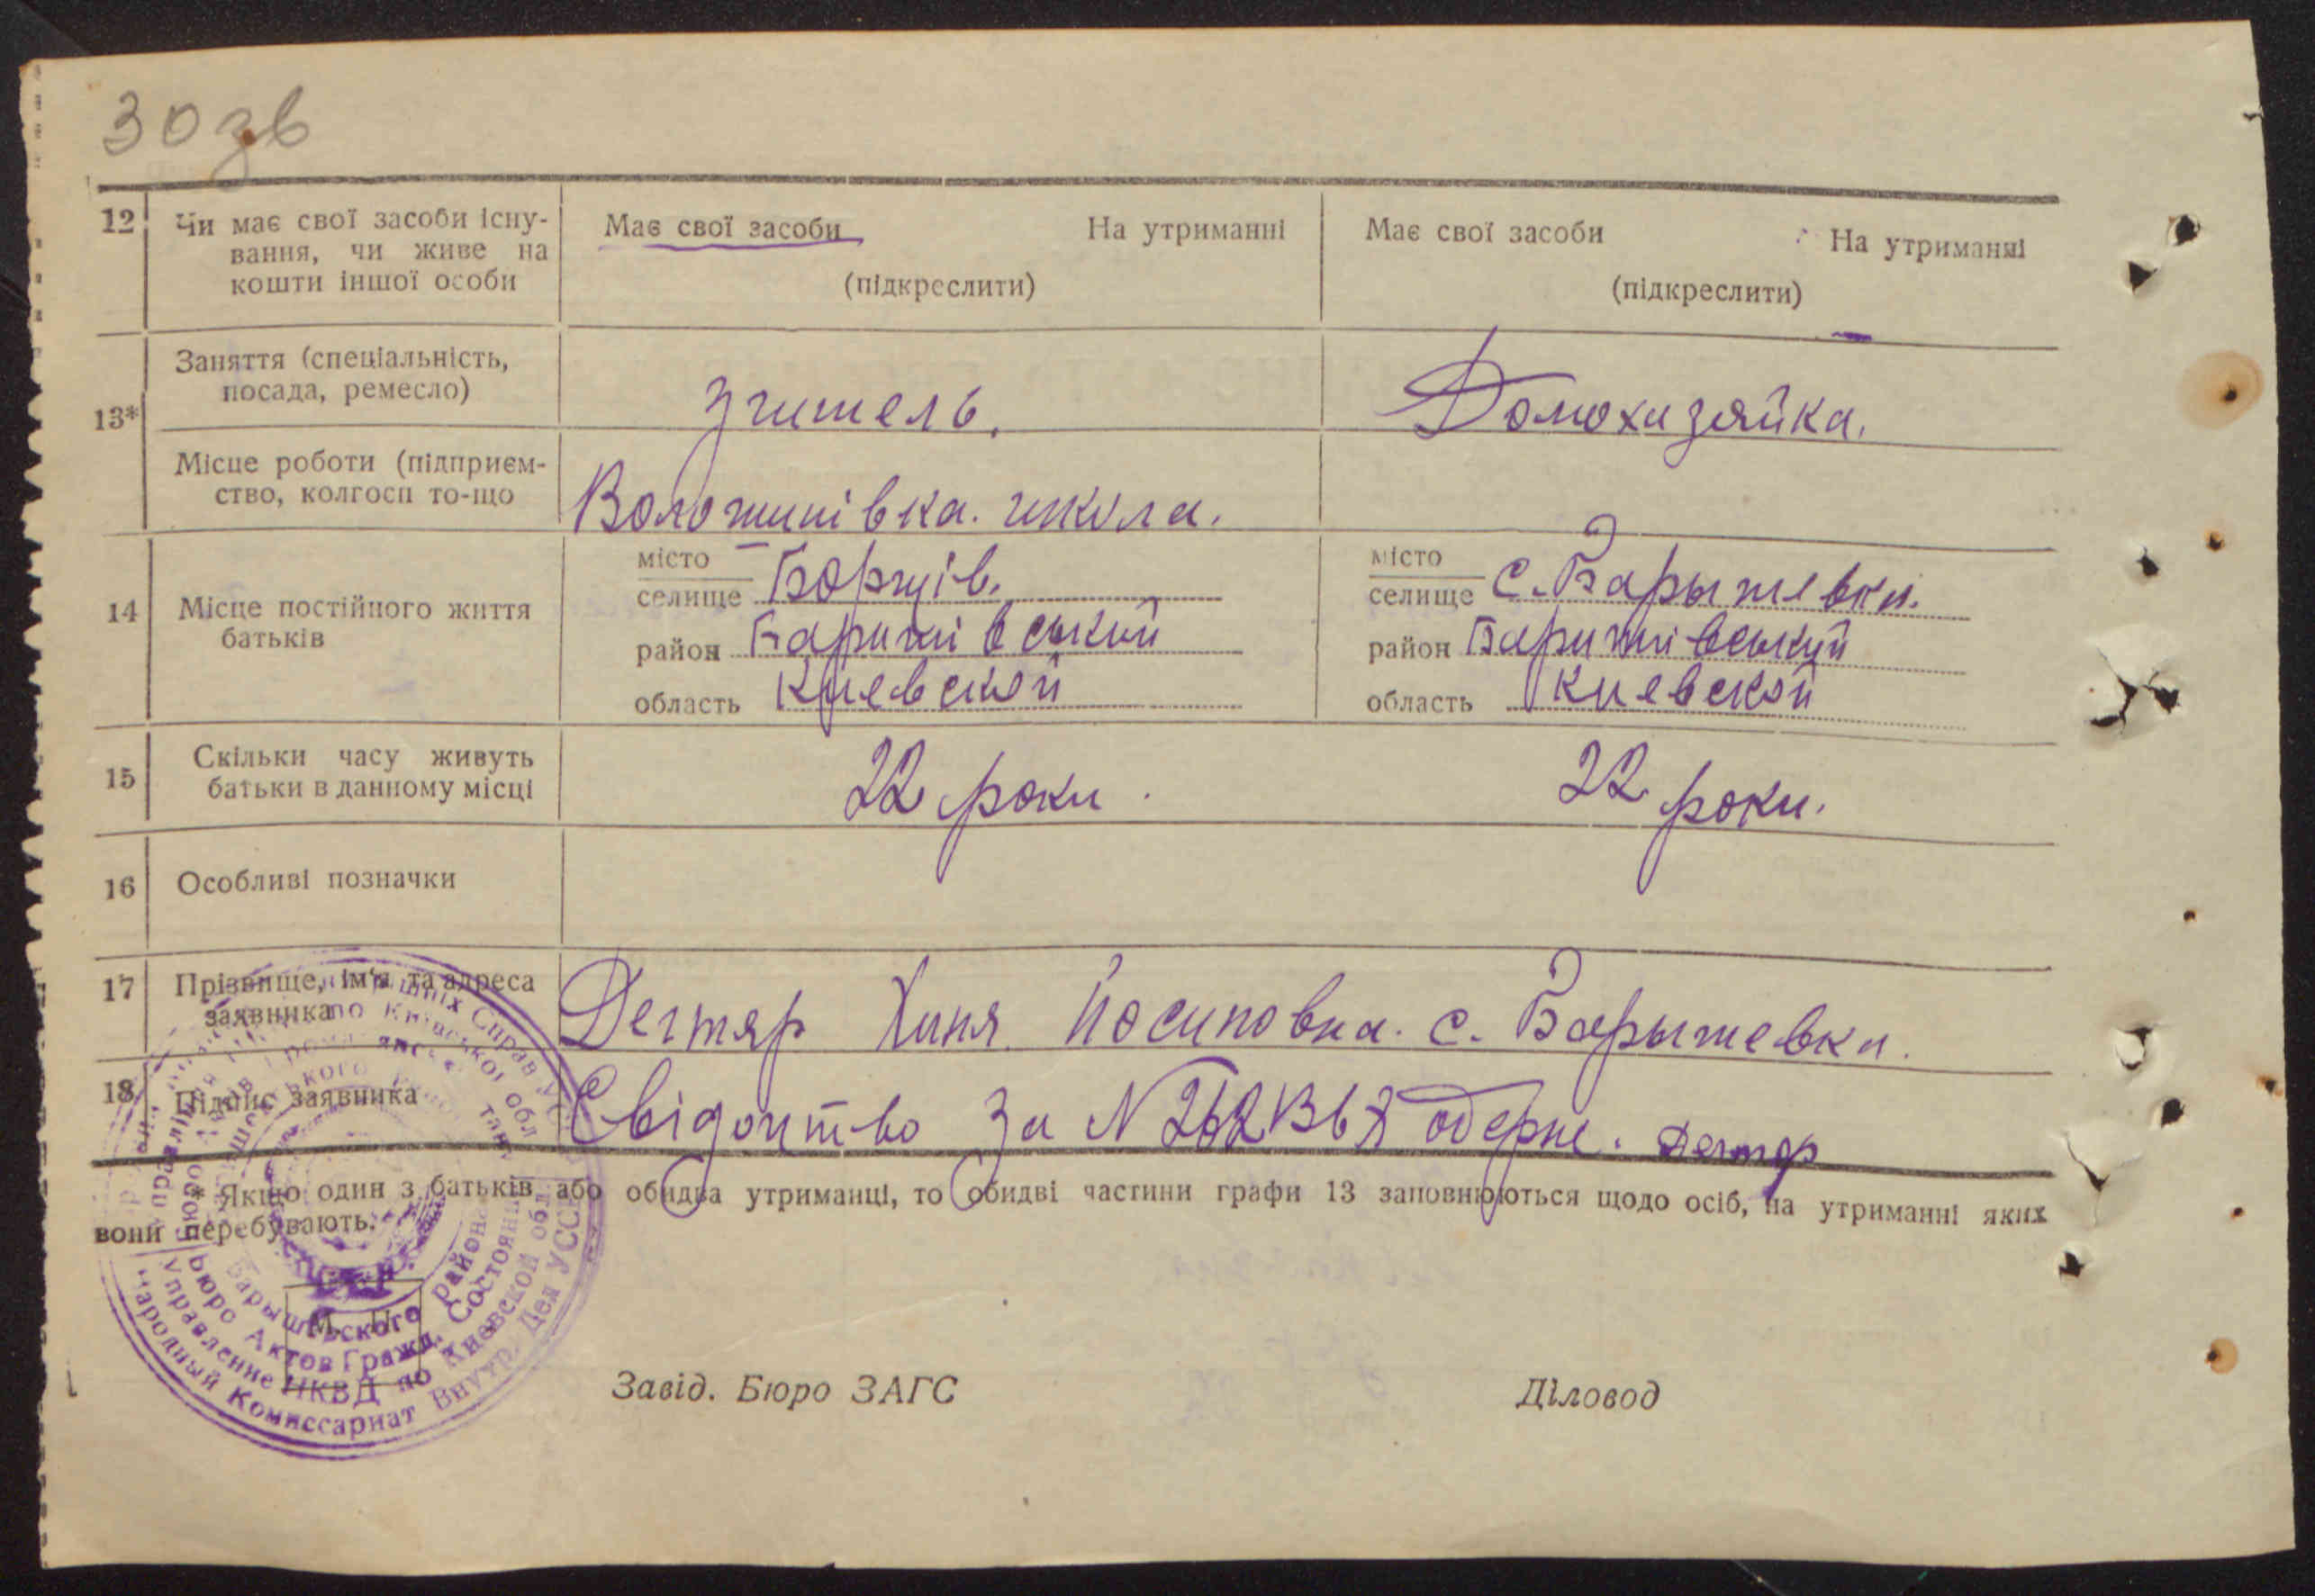 30 зв
12 Чи має свої засоби існу-
вання, чи живе на
кошти іншої особи
Має свої засоби На утриманні
(підкреслити)
Має свої засоби На утриманні
(підкреслити)
13* Заняття (спеціальність,
посада, ремесло)
Учитель.
Домохазяйка.
Місце роботи (підприєм-
ство, колгосп то-що
Волошинівка. школа.
14 Місце постійного життя
батьків
місто
селище Борщів.
район Баришівський
область Киевской
місто
селище с. Барышевки.
район Баришівський
область Киевской
15 Скільки часу живуть
батьки в данному місці
22 роки.
22 роки.
16 Особливі позначки
17 Прізвище, ім'я та адреса
заявника
Дегтяр Хиня Йосиповна. с. Барышевка.
18 Підпис заявника
Свідоцтво за N одерж. Дегтяр
* Якщо один з батьків або обидва утриманці, то обидві частини графи 13 заповнюються щодо осіб, на утриманні яких
вони перебувають.
М. П.
Барышевского района
Бюро Актов Гражд. Состояния
Управление НКВД по Киевской обл.
Народный Комиссариат Внутр. Дел УССР
Завід. Бюро ЗАГС Діловод